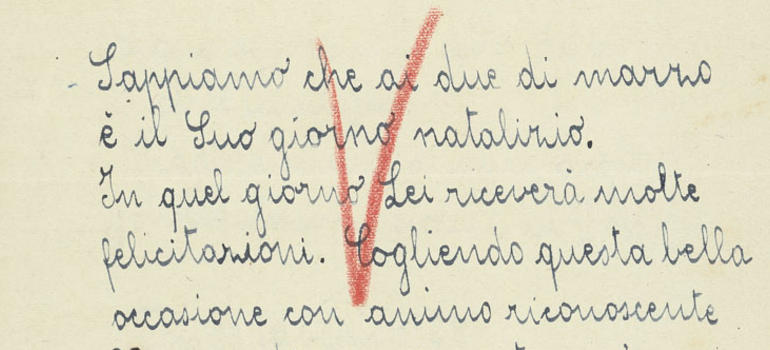 Sappiamo che ai due di marzo
è il Suo giorno natalizio.
In quel giorno Lei riceverà molte
felicitazioni. Cogliendo questa bella
occasione con animo riconoscente